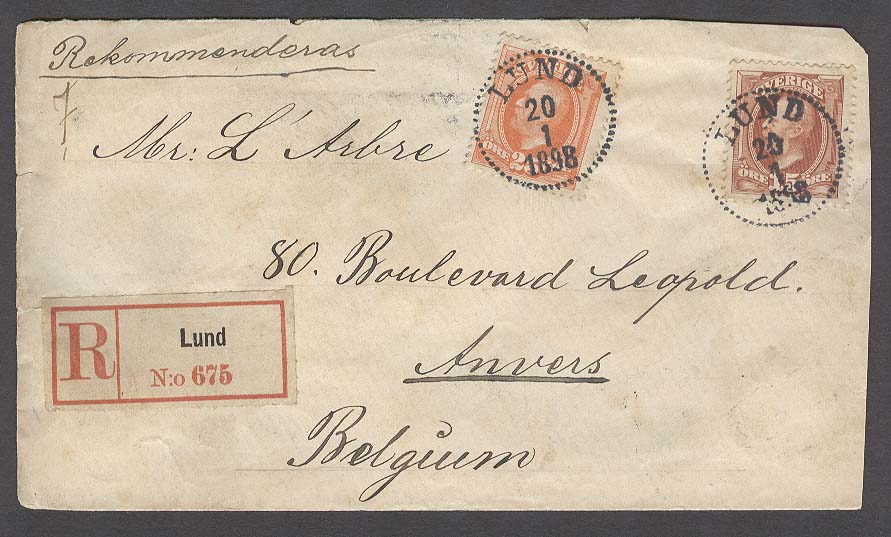 Rekommenderas
7
LUND
20
1
1898
ÖRE
LUND
20
1
1898
SVERIGE
ÖRE 15 ÖRE
Mr: L'Arbre
80. Boulevard Leopold.
R
Lund
N:o 675
Anvers
Belgium